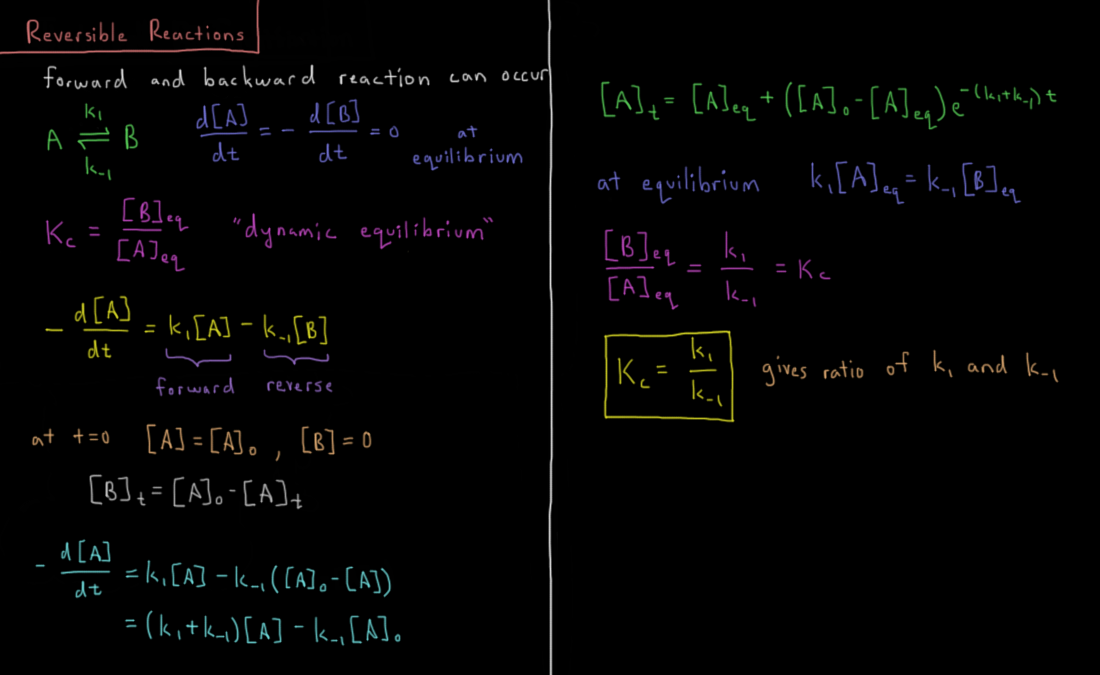 Reversible Reactions
forward and backward reaction can occur
A ⇌ B (k₁ above, k₋₁ below)  d[A]/dt = - d[B]/dt = 0 at equilibrium
K_c = [B]eq/[A]eq "dynamic equilibrium"
- d[A]/dt = k₁[A] - k₋₁[B]
forward reverse
at t=0 [A]=[A]₀, [B]=0
[B]t = [A]₀ - [A]t
- d[A]/dt = k₁[A] - k₋₁([A]₀ - [A])
= (k₁+k₋₁)[A] - k₋₁[A]₀
[A]t = [A]eq + ([A]₀ - [A]eq)e^-(k₁+k₋₁)t
at equilibrium k₁[A]eq = k₋₁[B]eq
[B]eq/[A]eq = k₁/k₋₁ = K_c
K_c = k₁/k₋₁ gives ratio of k₁ and k₋₁